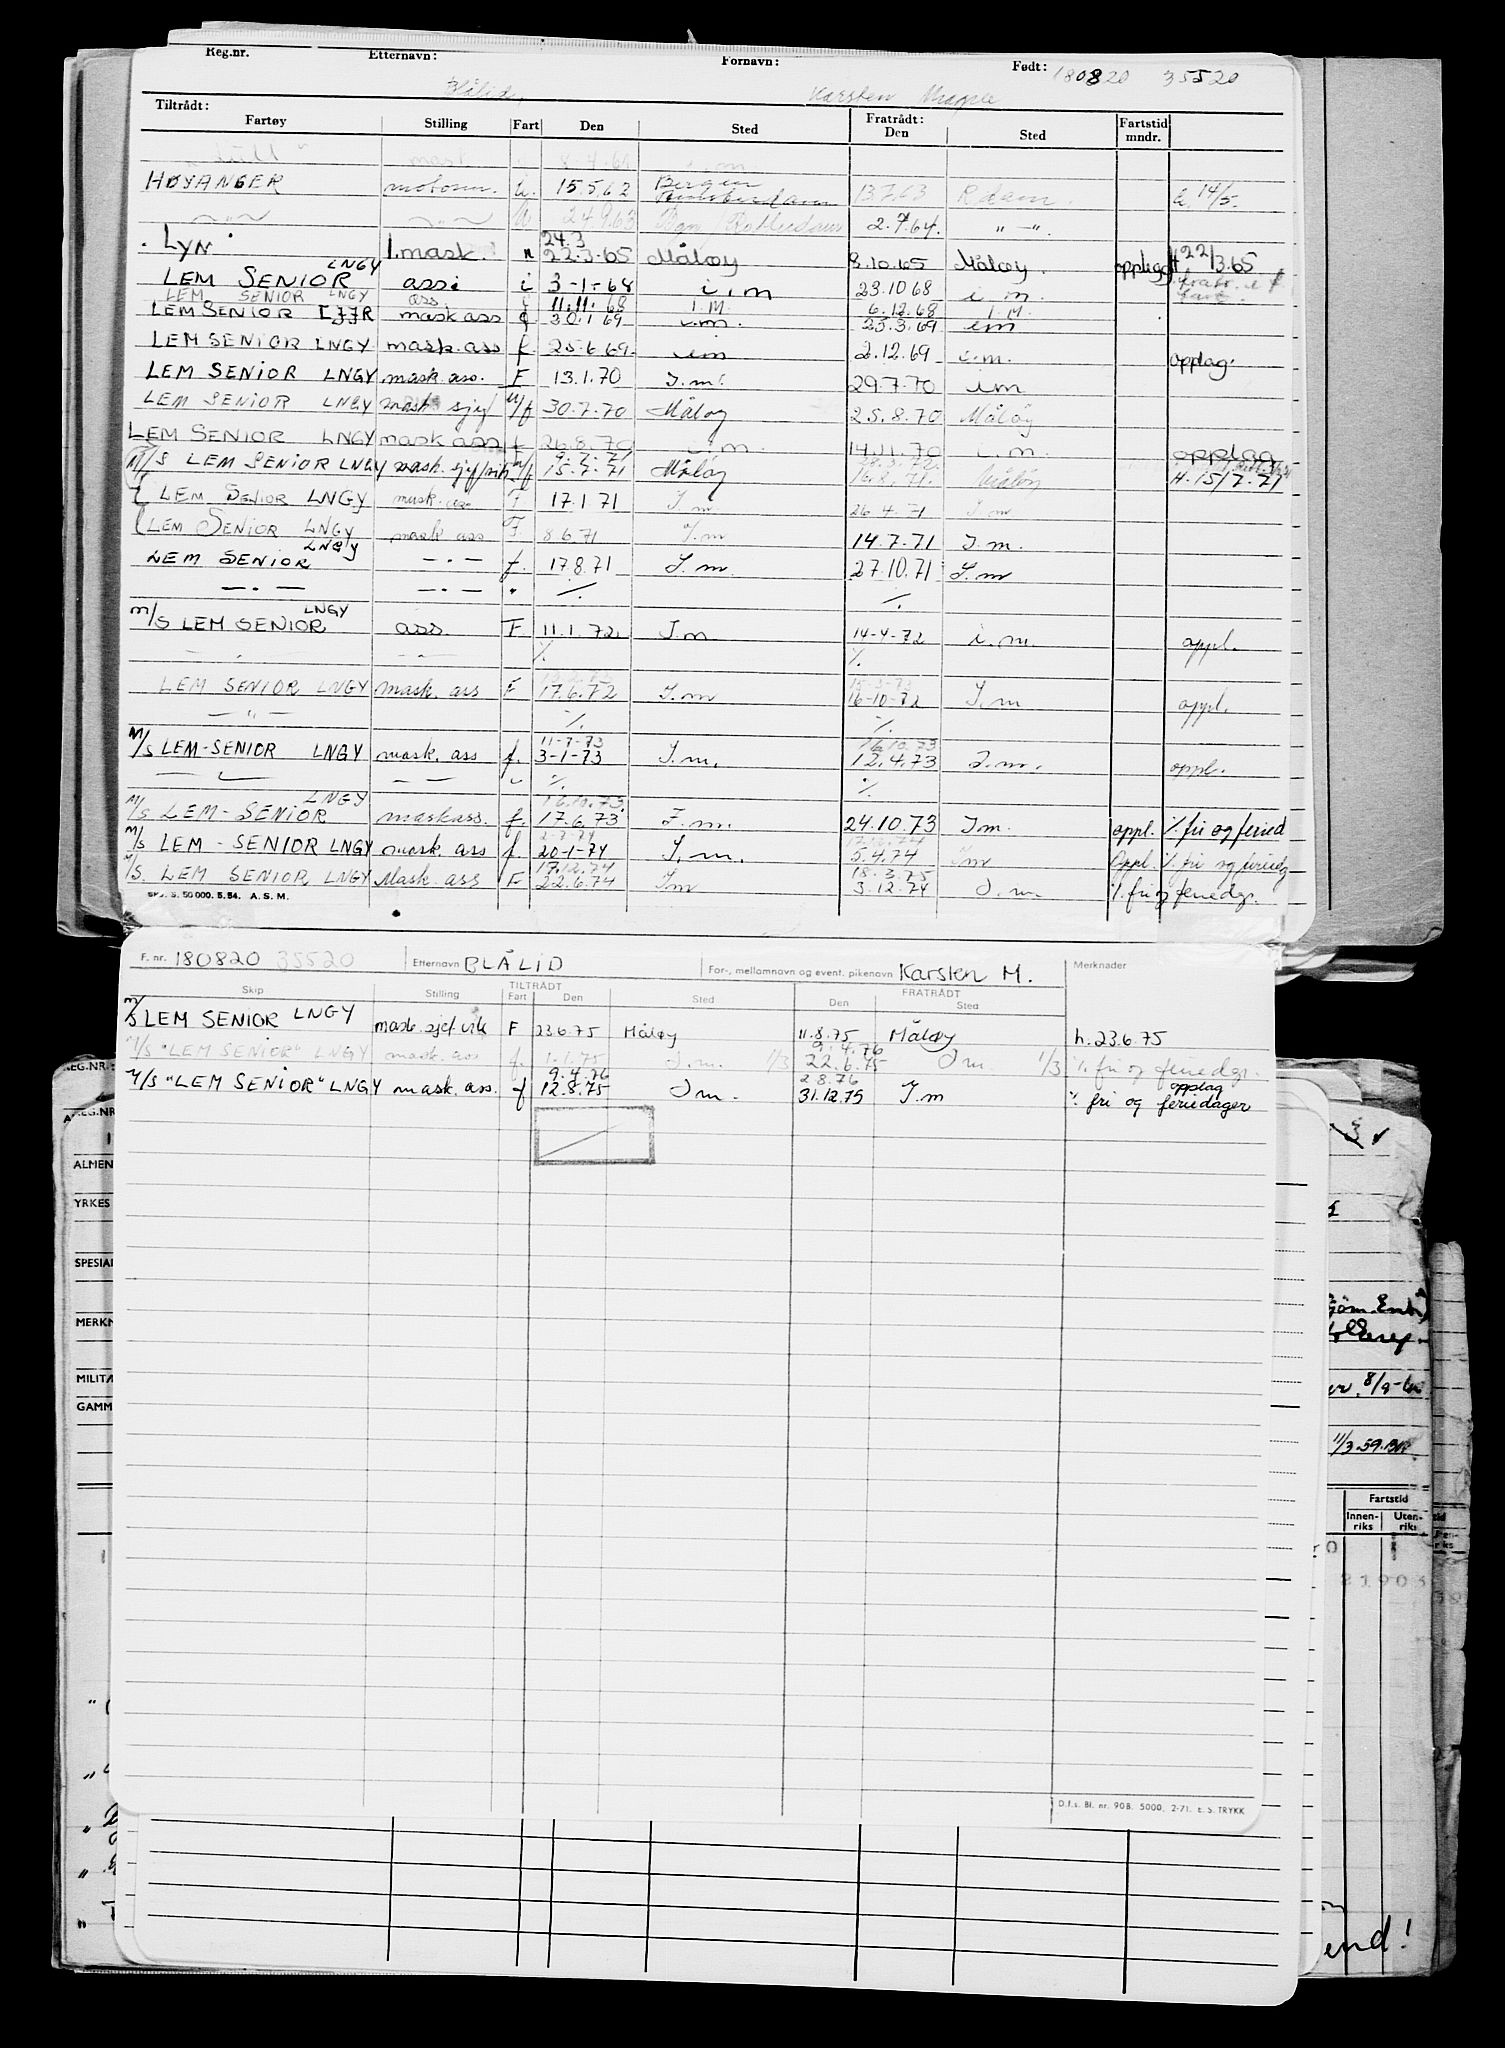 Reg.nr. Etternavn: Fornavn: Født: 180820 35520
Blålid, Karsten Magne
Tiltrådt: Fratrådt:
Fartøy Stilling Fart Den Sted Den Sted Fartstid mndr.
mask 8-4.61 i.m.
HØYANGER motorm. u. 15.5.62 Bergen Amsterdam 13.7.63 R.dam. h. 14/5.
— " — — " — u 24.9.63 Bgn / Rotterdam 2.9.64. " — " .
24.3
LYN 1.mask. n 22.3.65 Måløy 8.10.65 Måløy opplegg H 22/3.65
LEM SENIOR LNGY assi i 3-1-68 i.m 23.10 68 i m
LEM SENIOR LNGY ass. i 11.11.68 I.M. 6.12.68 I.M.
LEM SENIOR LJJR mask ass f 30.1 69 i.m. 25.3.69 im
LEM SENIOR LNGY mask.ass f. 25.6 69. im 2.12.69 i.m. opplag.
LEM SENIOR LNGY mask.ass. F 13.1.70 I.m. 29.7.70 im
LEM SENIOR LNGY mask sjef n/f 30.7.70 Måløy 25.8.70 Måløy
LEM SENIOR LNGY mask ass f 26.8.70 i.m. 14.11.70 i.m. opplag
9.7.71
M/S LEM SENIOR LNGY mask.sjef/vik n/f 15.7.71 Måløy 16.8.71. Måløy H.15/7.71
LEM SENIOR LNGY mask.ass F 17.1 71 I m 26 4.71 I m
LEM SENIOR LNGY mask ass F. 8 6.71 I.m 14.7.71 I.m.
LEM SENIOR LNGY — " — f. 17 8.71 I.m. 27.10.71 I.m
— " — — " — " ./. ./.
M/S LEM SENIOR LNGY ass. F. 11.1.72 I.m 14-4-72 i.m. oppl.
./. ./.
LEM SENIOR LNGY mask. ass F 17.6.72 I.m 16-10-72 I.m oppl.
— " — ./. ./.
11-7-73 16.10.73
M/S LEM-SENIOR LNGY mask. ass f. 3-1-73 I.m. 12.4.73 I.m. oppl.
— " — — — " ./. ./.
16.10.73
M/S LEM-SENIOR LNGY maskass. f. 17.6.73 I.m. 24.10.73 I m. oppl. ./. fri og feried
2-7-74
M/S LEM-SENIOR LNGY mask. ass f. 20-1-74 I.m. 5.4.74 I m Oppl. ./. fri og feriedg
17.12.74 18-3.75
M/S. LEM SENIOR LNGY Mask. ass F 22.6.74 I m 3.12.74 I.m. ./. fri og feriedgr.
50 000. 5.54. A.S.M.
F. nr. 180820 35520 Etternavn BLÅLID For-, mellomnavn og event. pikenavn Karsten M. Merknader
TILTRÅDT FRATRÅDT
Skip Stilling Fart Den Sted Den Sted
M/S LEM SENIOR LNGY mask.sjef.vik F 23.6.75 Måløy 11.8.75 Måløy h.23.6.75
9.4.76
M/S "LEM SENIOR" LNGY mask. ass f. 1.1.75 I.m. 1/3 22.6.75 I m 1/3 ./. fri og feriedgr.
9.4.76 2 8.76 opplag
M/S "LEM SENIOR" LNGY mask. ass. f 12.8.75 I m. 31.12.75 I.m ./. fri og feriedager
D.f.s. Bl. nr. 90B. 5000, 2-71. E. S. TRYKK
REG.NR.
ALMEN
YRKES
SPESIAL
MERKN
MILITÆ
GAMM
3
11/3.59.
Fartstid
Innen-riks Uten-riks
81903
end!